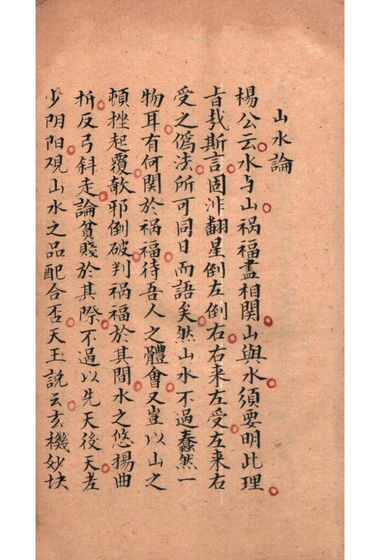 山水論
楊公云水与山祸福盡相関山與水須要明此理
旨哉斯言固非翻星倒左倒右右来左受左来右
受之僞法所可同日而語矣然山水不過蠢然一
物耳有何関於祸福待吾人之體會又豈以山之
頓挫起覆欹邪倒破判祸福於其間水之悠揚曲
折反弓斜走論貧賤於其際不過以先天後天老
少阴阳观山水之品配合否天玉說云玄機妙块